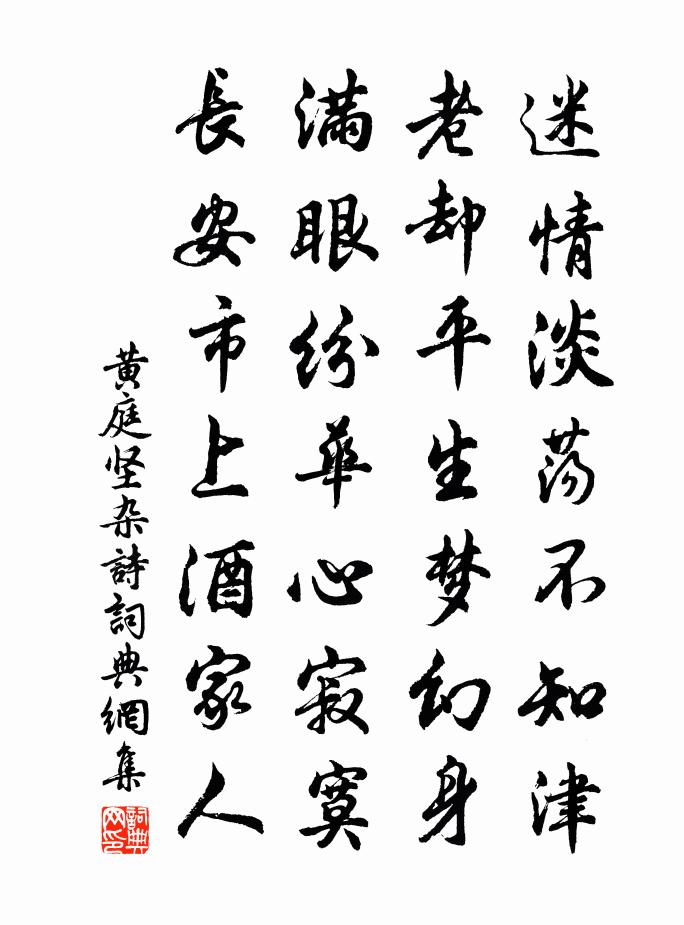 迷情淡荡不知津
老却平生梦幻身
滿眼纷華心寂寞
長安市上酒家人
黄庭坚杂詩詞典網集
詞典网印